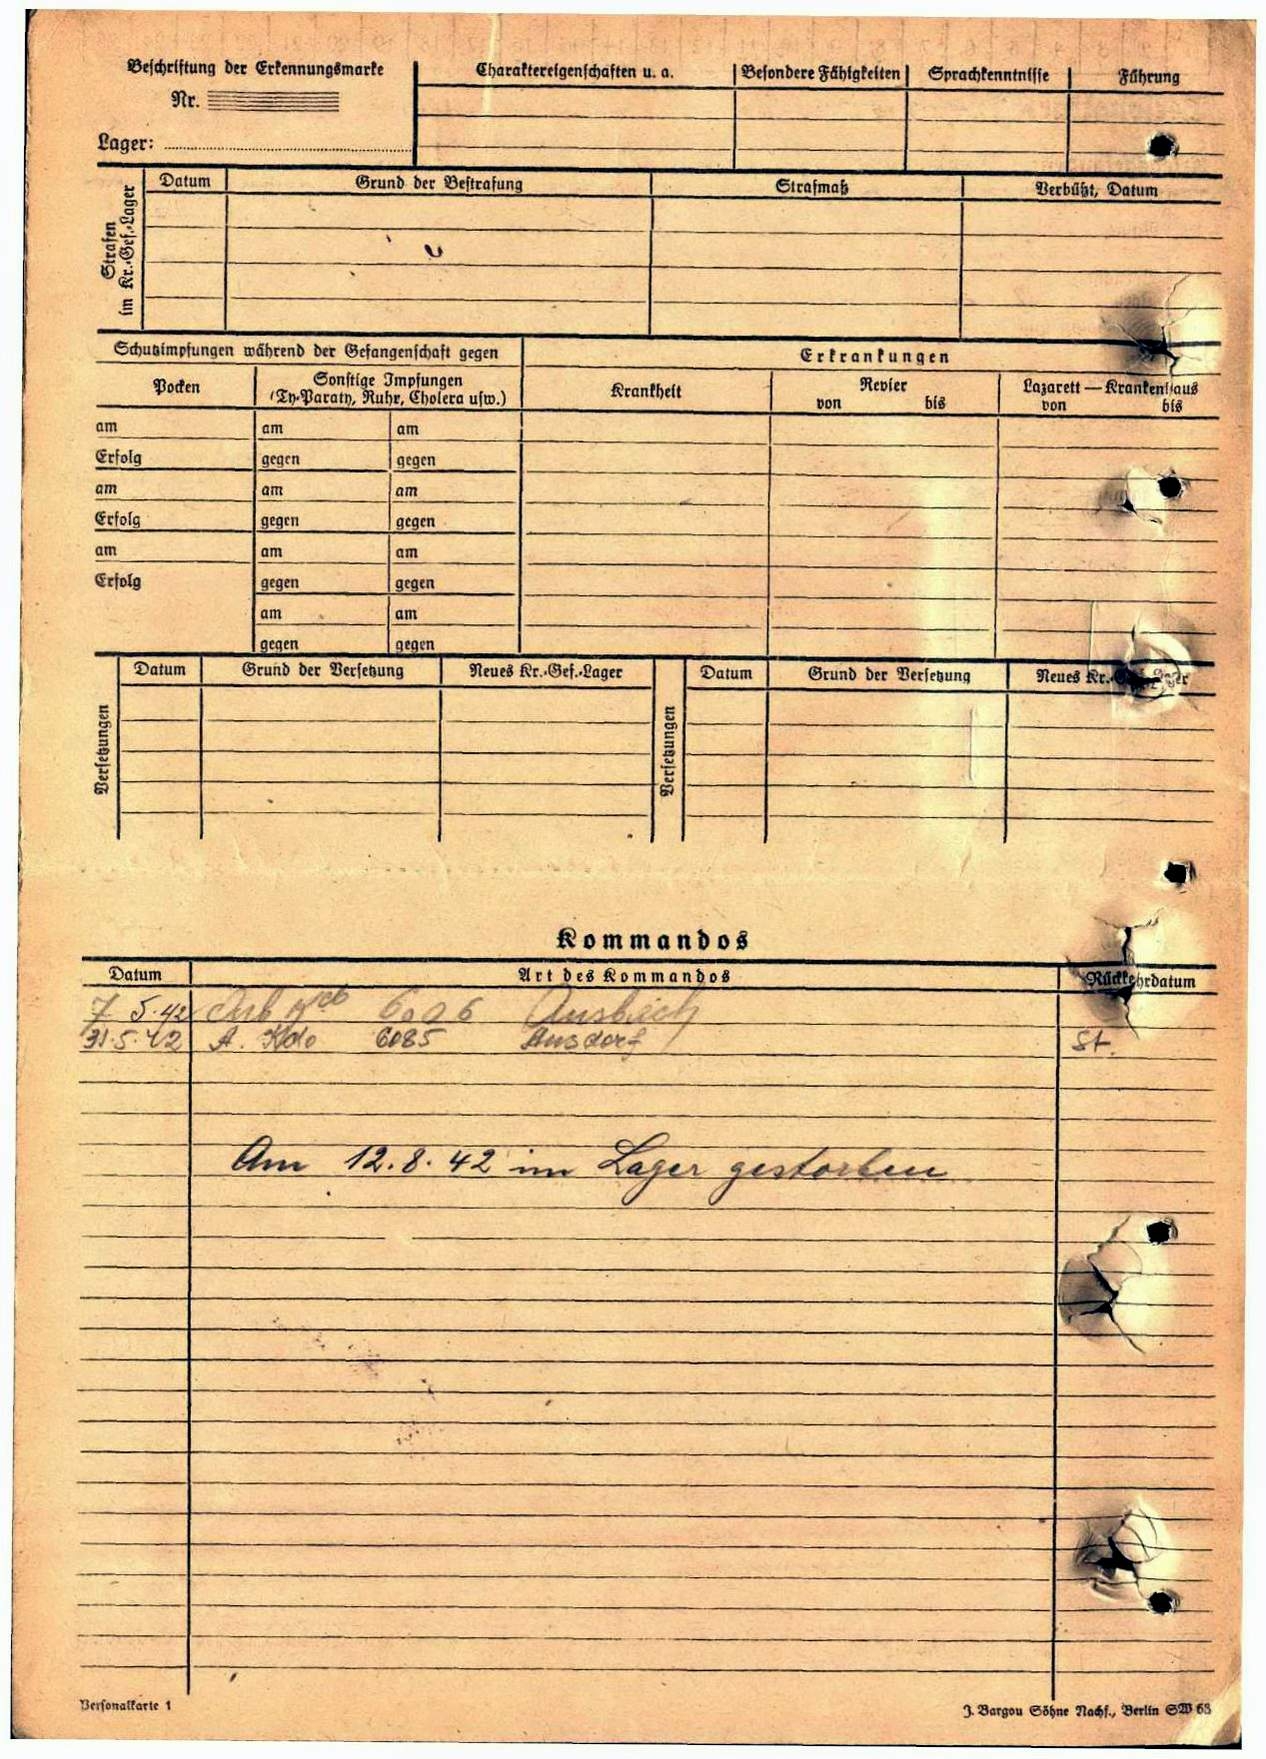 Beschriftung der Erkennungsmarke
Nr.
Lager:
Charaktereigenschaften u. a.
Besondere Fähigkeiten
Sprachkenntnisse
Führung
Strafen
im Kr.-Gef.-Lager
Datum
Grund der Bestrafung
Strafmaß
Verbüßt, Datum
Schutzimpfungen während der Gefangenschaft gegen
Erkrankungen
Pocken
Sonstige Impfungen
(Ty-Paraty, Ruhr, Cholera usw.)
Krankheit
Revier
von bis
Lazarett — Krankenhaus
von bis
am am am
Erfolg gegen gegen
am am am
Erfolg gegen gegen
am am am
Erfolg gegen gegen
am am
gegen gegen
Versetzungen
Datum Grund der Versetzung Neues Kr.-Gef.-Lager
Versetzungen
Datum Grund der Versetzung Neues Kr.-Gef.-Lager
Kommandos
Datum Art des Kommandos Rückkehrdatum
7 5.42 6096
31.5.42 A. Kdo 6085 Ausdorf St.
Am 12.8.42 im Lager gestorben
Personalkarte 1
J. Bargou Söhne Nachf., Berlin SW 68